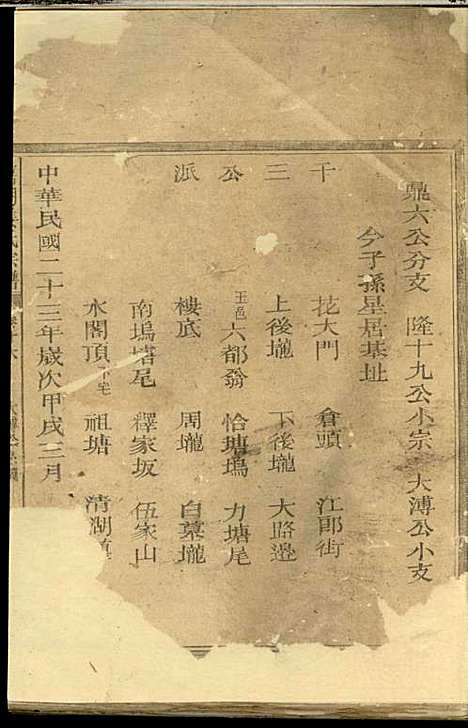 鼎六公分支　隆十九公小宗　大溥公小支
今子孫星居基址
千　花大門　倉頭　江郎街
三　上後壠　下後壠　大路邊
公　玉邑六都翁　恰塘塢　力塘尾
派　樓底　周壠　白墓壠
南塢塘尾　釋家坂　伍家山
水閣頂下宅　祖塘　清湖鎮
中華民國二十三年歲次甲戌三月
氏宗譜